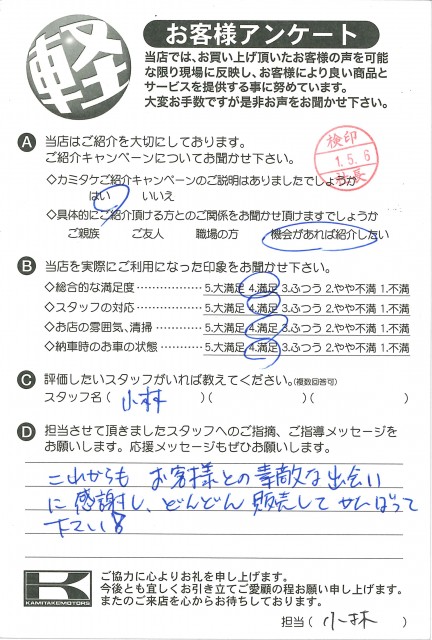 軽
お客様アンケート
当店では、お買い上げ頂いたお客様の声を可能
な限り現場に反映し、お客様により良い商品と
サービスを提供する事に努めています。
大変お手数ですが是非お声をお聞かせ下さい。
検印
1.5.6
社長
A 当店はご紹介を大切にしております。
ご紹介キャンペーンについてお聞かせ下さい。
◇カミタケご紹介キャンペーンのご説明はありましたでしょうか
はい いいえ
◇具体的にご紹介頂ける方とのご関係をお聞かせ頂けますでしょうか
ご親族 ご友人 職場の方 機会があれば紹介したい
B 当店を実際にご利用になった印象をお聞かせ下さい。
◇総合的な満足度 5.大満足 4.満足 3.ふつう 2.やや不満 1.不満
◇スタッフの対応 5.大満足 4.満足 3.ふつう 2.やや不満 1.不満
◇お店の雰囲気、清掃 5.大満足 4.満足 3.ふつう 2.やや不満 1.不満
◇納車時のお車の状態 5.大満足 4.満足 3.ふつう 2.やや不満 1.不満
C 評価したいスタッフがいれば教えてください。(複数回答可)
スタッフ名( 小林 )( )( )
D 担当させて頂きましたスタッフへのご指摘、ご指導メッセージを
お願いします。応援メッセージもぜひお願いします。
これからも お客様との素敵な出会い
に感謝し、どんどん販売して がんばって
下さい!
K
KAMITAKEMOTORS
ご協力に心よりお礼を申し上げます。
今後とも宜しくお引き立てご愛顧の程お願い申し上げます。
またのご来店を心からお待ちしております。
担当( 小林 )